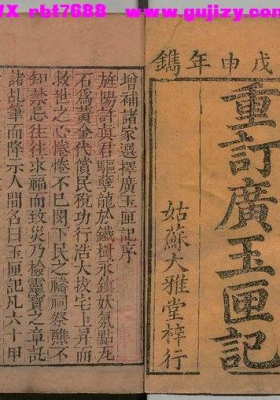 WX rbt7688  www.gujizy.com
戊申年鐫
重訂廣玉匣記
姑蘇大雅堂梓行
增補諸家選擇廣玉匣記序
旌陽許真君驅孽龍於鐵樹永鎮妖氛點瓦
石為黃金代償民稅功行浩大拔宅上昇而
救世之心惓惓不已閔下民之禱祠祭醮不
知禁忌往往求福而致災乃檢靈寶之章託
諸乩筆而降示人間名曰玉匣記凡六十甲
WX rbt7688  www.gujizy.com